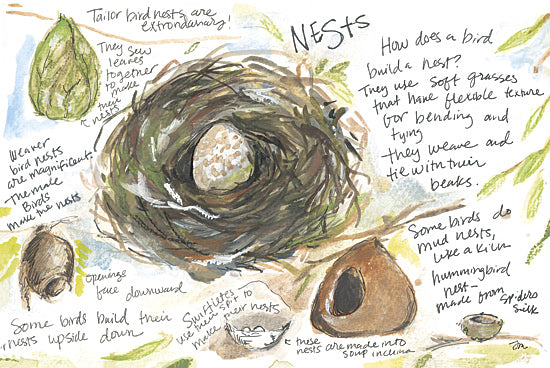 Tailor bird nests are
extrordanary!
They sew
leaves
together
to make
their
nests
NESTS
How does a bird
build a nest?
They use soft grasses
that have flexible texture
for bending and
tying
they weave and
tie with their
beaks.
Weaver
bird nests
are magnificent.
The male
Birds
make the nests
openings
face downward
Some birds build their
nests upside down
Swiftlets
use their spit to
make their nests
these
nests are made into
soup in China
Some birds do
mud nests,
like a kiln
hummingbird
nest-
made from
spiders
silk